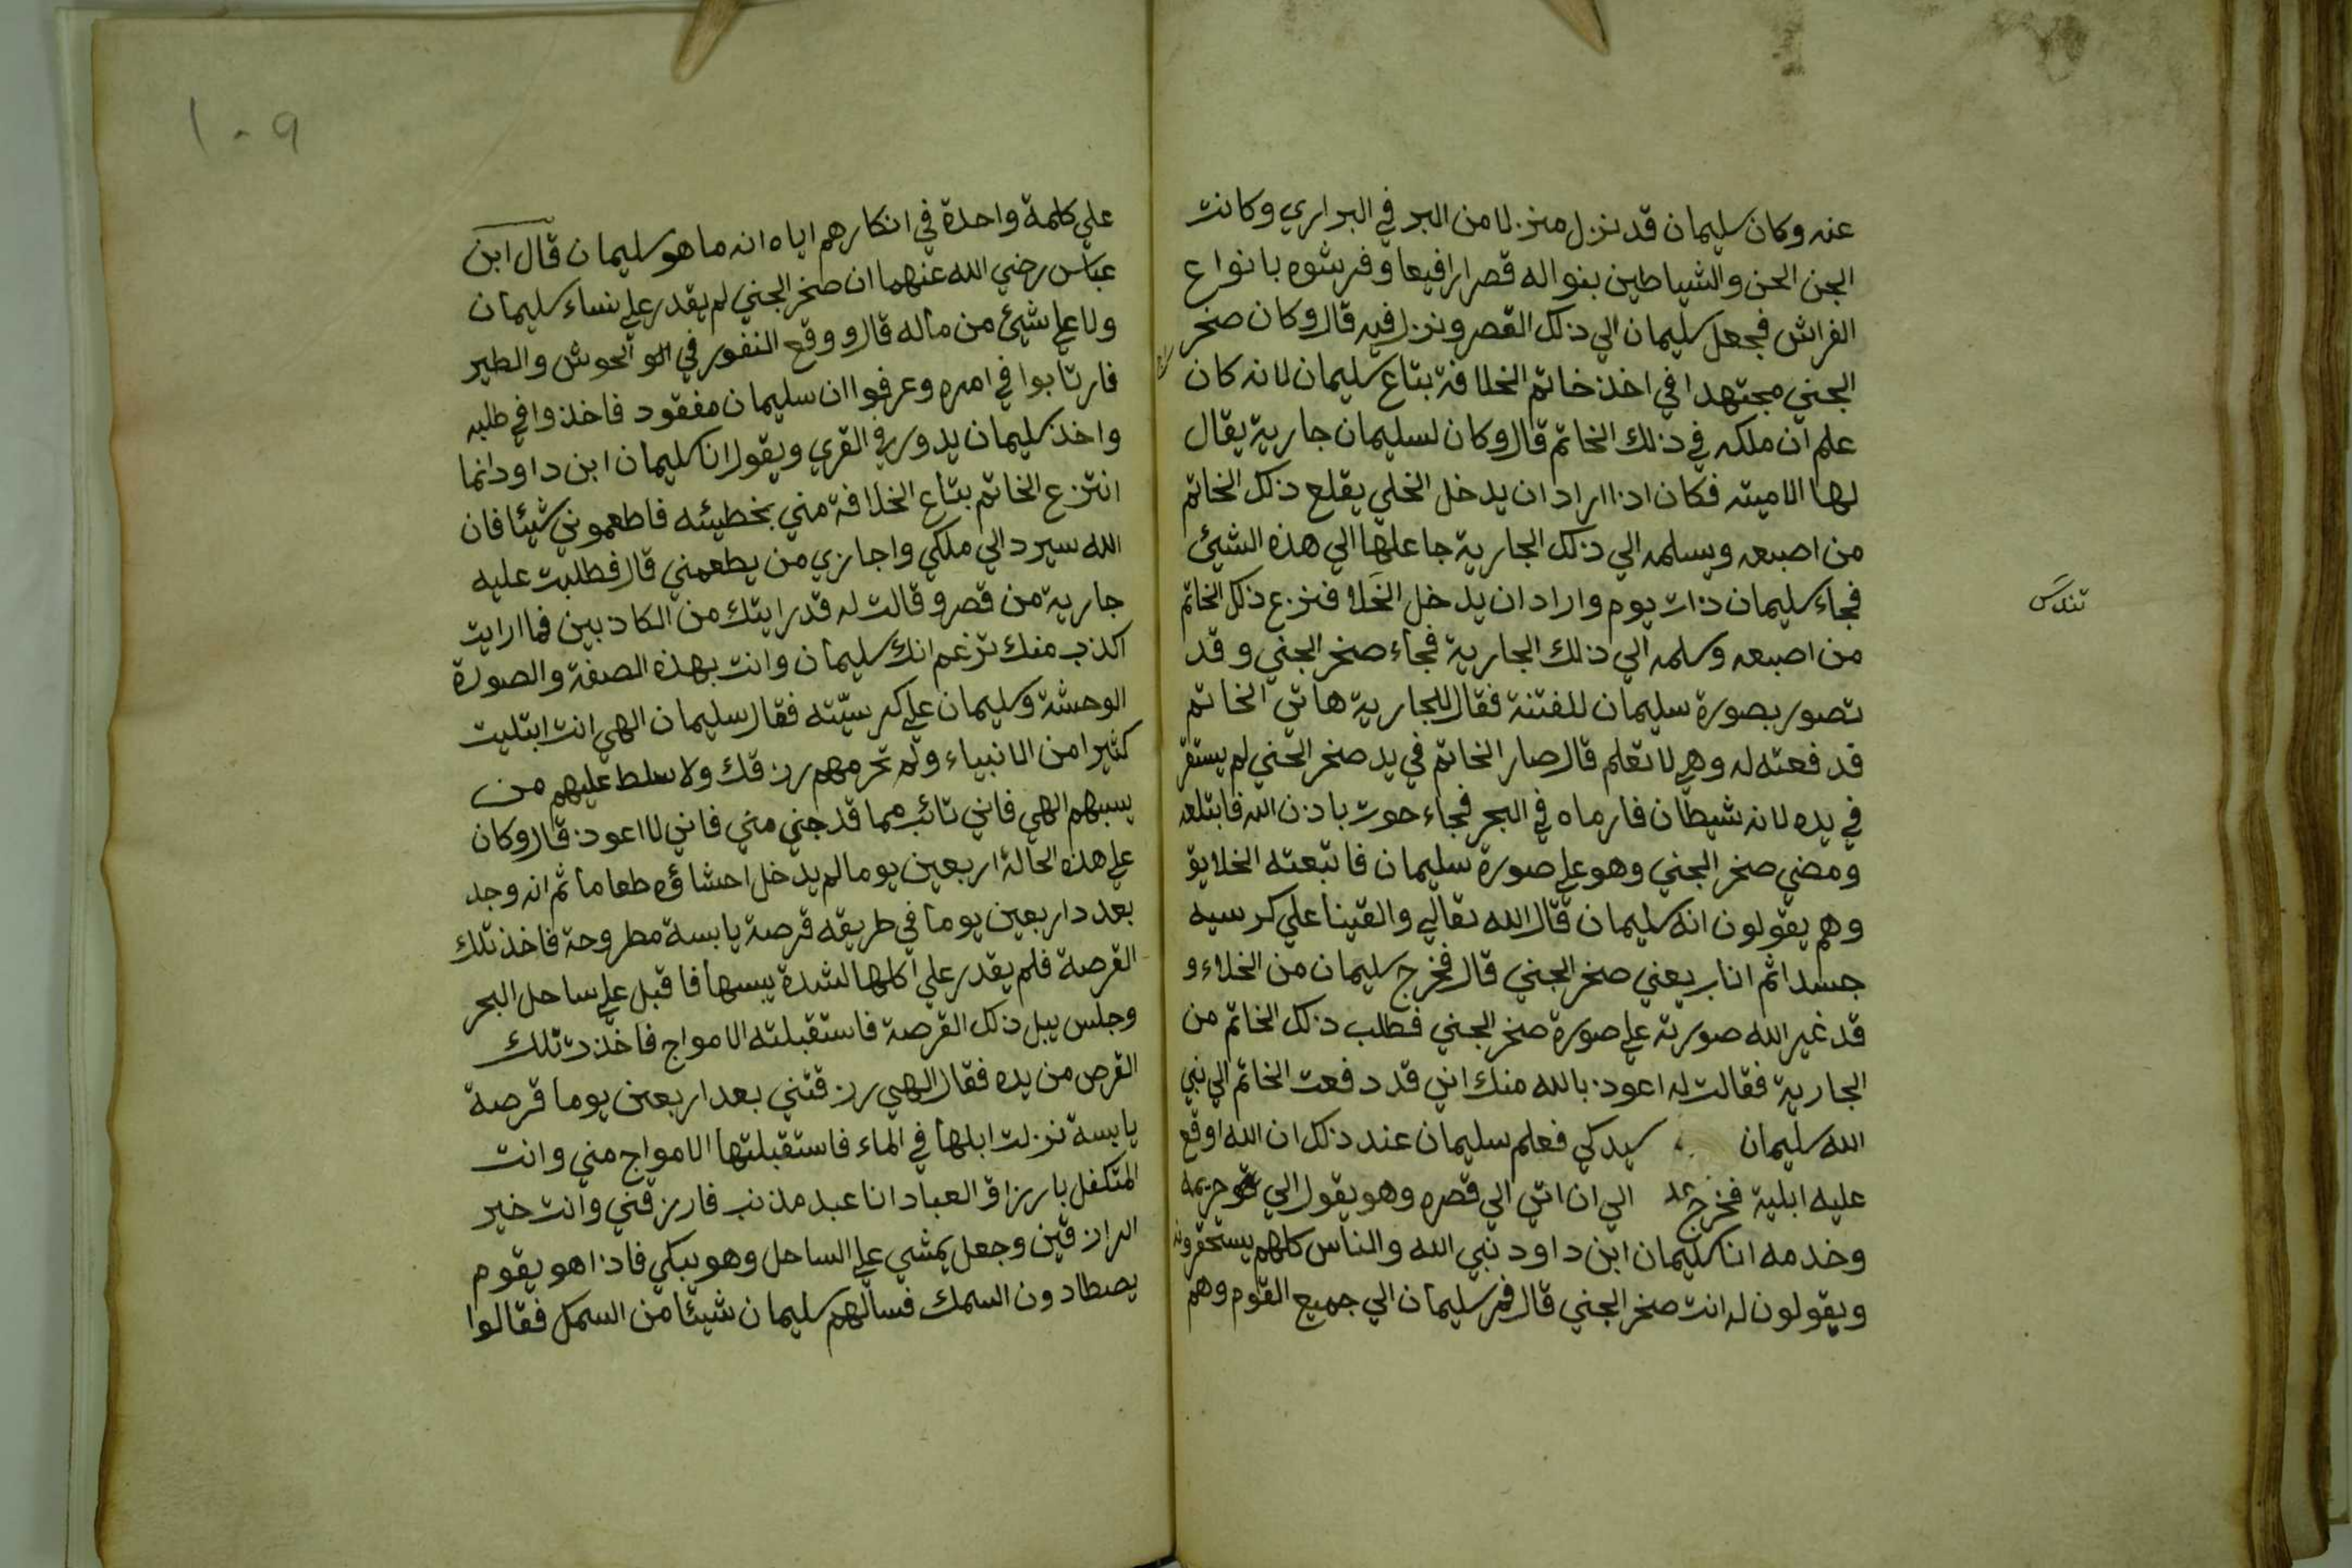 عنه وكان سليمان قد نزل منزلا من البر في البراري وكانت
الجن الجن والشياطين بنوا له قصرا رافيعا وفرشوه بانواع
الفراش فجعل سليمان الي ذلك القصر ونزل فيه قال وكان صخر
الجني مجتهدا في اخذ خاتم الخلافة بتاع سليمان لانه كان
علم ان ملكه في ذلك الخاتم قال وكان لسليمان جارية يقال
لها الامينه فكان اذا اراد ان يدخل الخلي يقلع ذلك الخاتم
من اصبعه ويسلمه الي ذلك الجارية جاعلها الي هذه الشيئ
فجاء سليمان ذات يوم واراد ان يدخل الخلا فنزع ذلك الخاتم
من اصبعه وسلمه الي ذلك الجارية فجاء صخر الجني وقد
تصور بصورة سليمان للفتنة فقال للجارية هاتي الخاتم
فدفعته له وهي لا تعلم قال صار الخاتم في يد صخر الجني لم يستقر
في يده لانه شيطان فارماه في البحر فجاء حوت باذن الله فابتلعه
ومضي صخر الجني وهو علي صورة سليمان فاتبعته الخلايق
وهم يقولون انه سليمان قال الله تعالي والقينا علي كرسيه
جسدا ثم اناب يعني صخر الجني قال فخرج سليمان من الخلاء و
قد غير الله صورته علي صورة صخر الجني فطلب ذلك الخاتم من
الجارية فقالت له اعوذ بالله منك اني قد دفعت الخاتم الي نبي
الله سليمان سيدكي فعلم سليمان عند ذلك ان الله اوقع
عليه ابلية فخرج الي ان اتي الي قصره وهو يقول الي حريمه
وخدمه انا سليمان ابن داود نبي الله والناس كلهم يستحقرونه
ويقولون له انت صخر الجني قال فمر سليمان الي جميع القوم وهم
١٠٩
علي كلمة واحدة في انكارهم اياه انه ما هو سليمان قال ابن
عباس رضي الله عنهما ان صخر الجني لم يقدر علي نساء سليمان
ولا علي شيئ من ماله قال ووقع النفور في الوحوش والطير
فارتابوا في امره وعرفوا ان سليمان مفقود فاخذوا في طلبه
واخذ سليمان يدور في القري ويقول انا سليمان ابن داود انما
انتزع الخاتم بتاع الخلافة مني بخطيئه فاطعموني شيئا فان
الله سيرد الي ملكي واجازي من يطعمني قال فطلبت عليه
جارية من قصر وقالت له قد رايتك من الكاذبين فما رايت
اكذب منك تزعم انك سليمان وانت بهذه الصفة والصورة
الوحشة وسليمان علي كرسيّته فقال سليمان الهي انت ابتليت
كثيرا من الانبياء ولم تحرمهم رزقك ولا سلط عليهم من
يسبهم الهي فاني تائب مما قد جني مني فاني لا اعود قال وكان
علي هذه الحالة اربعين يوما لم يدخل احشاؤه طعاما ثم انه وجد
بعدد اربعين يوما في طريقه قرصة يابسة مطروحة فاخذ تلك
القرصة فلم يقدر علي اكلها لشدة يبسها فاقبل علي ساحل البحر
وجلس يبل ذلك القرصة فاستقبلته الامواج فاخذت تلك
القرص من يده فقال الهي رزقتني بعد اربعين يوما قرصة
يابسة نزلت ابلها في الماء فاستقبلتها الامواج مني وانت
المتكفل بارزاق العباد انا عبد مذنب فارزقني وانت خير
الرازقين وجعل يمشي علي الساحل وهو يبكي فاذا هو بقوم
يصطادون السمك فسالهم سليمان شيئا من السمك فقالوا